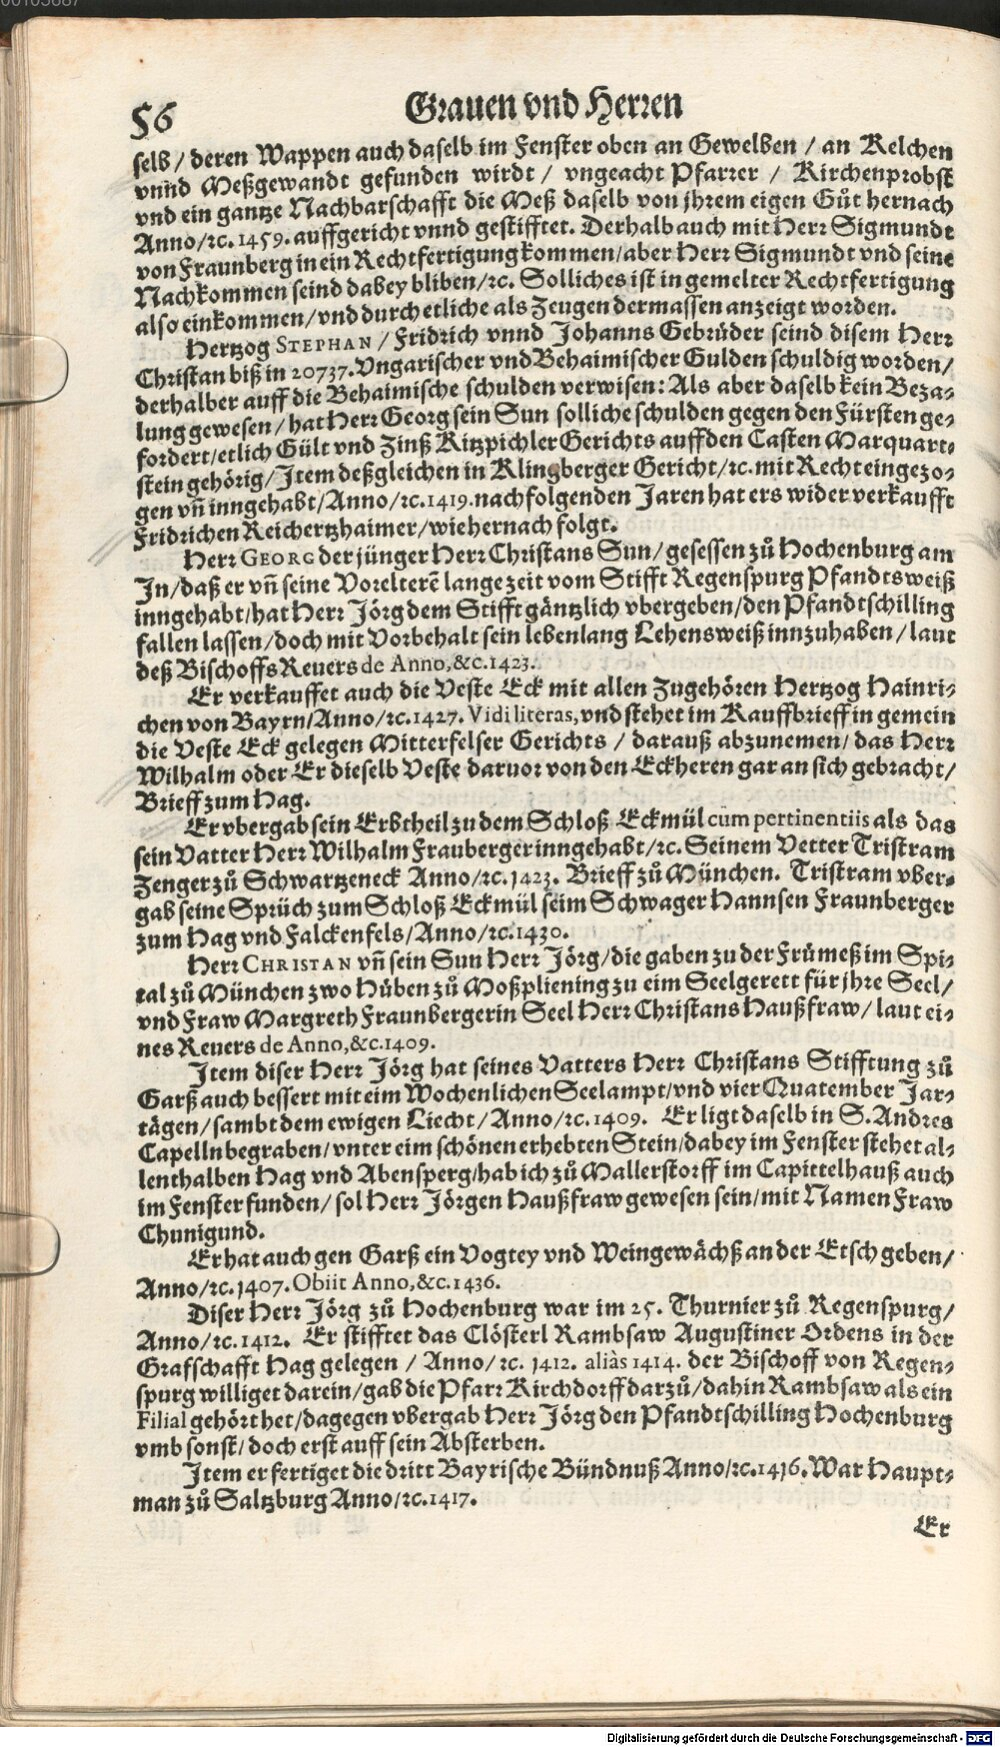 56
Grauen vnd Herren
selb / deren Wappen auch daselb im Fenster oben an Gewelben / an Kelchen
vnnd Meßgewandt gefunden wirdt / vngeacht Pfarrer / Kirchenprobst
vnd ein gantze Nachbarschafft die Meß daselb von jhrem eigen Gůt hernach
Anno/ꝛc. 1459. auffgericht vnnd gestifftet. Derhalb auch mit Herr Sigmundt
von Fraunberg in ein Rechtfertigung kommen/aber Herr Sigmundt vnd seine
Nachkommen seind dabey bliben/ꝛc. Solliches ist in gemelter Rechtfertigung
also einkommen/vnd durch etliche als Zeugen dermassen anzeigt worden.
Hertzog STEPHAN / Fridrich vnnd Johanns Gebrüder seind disem Herr
Christan biß in 20737. Vngarischer vnd Behaimischer Gulden schuldig worden/
derhalber auff die Behaimische schulden verwisen: Als aber daselb kein Beza-
lung gewesen / hat Herr Georg sein Sun solliche schulden gegen den Fürsten ge-
fordert/etlich Gült vnd Zinß Kitzpichler Gerichts auff den Casten Marquart-
stein gehörig/Item deßgleichen in Klingberger Gericht/ꝛc. mit Recht eingezo-
gen vn̄ inngehabt/Anno/ꝛc. 1419. nachfolgenden Jaren hat ers wider verkaufft
Fridrichen Reichertzhaimer/wie hernach folgt.
Herr GEORG der jünger Herr Christans Sun/gesessen zů Hochenburg am
In/daß er vn̄ seine Vorelterē lange zeit vom Stifft Regenspurg Pfandtsweiß
inngehabt/hat Herr Jörg dem Stifft gäntzlich vbergeben/den Pfandtschilling
fallen lassen/doch mit Vorbehalt sein lebenlang Lehensweiß innzuhaben / laut
deß Bischoffs Reuers de Anno,&c. 1423.
Er verkauffet auch die Veste Eck mit allen Zugehören Hertzog Hainri-
chen von Bayrn/Anno/ꝛc. 1427. Vidi literas, vnd stehet im Kauffbrieff in gemein
die Veste Eck gelegen Mitterfelser Gerichts / darauß abzunemen/ das Herr
Wilhalm oder Er dieselb Veste daruor von den Eckheren gar an sich gebracht/
Brieff zum Hag.
Er vbergab sein Erbtheil zu dem Schloß Eckmül cum pertinentiis als das
sein Vatter Herr Wilhalm Frauberger inngehabt/ꝛc. Seinem Vetter Tristram
Zenger zů Schwartzeneck Anno/ꝛc. 1423. Brieff zů München. Tristram vber-
gab seine Sprüch zum Schloß Eckmül seim Schwager Hannsen Fraunberger
zum Hag vnd Falckenfels/Anno/ꝛc. 1430.
Herr CHRISTAN vn̄ sein Sun Herr Jörg/die gaben zu der Frümeß im Spi-
tal zů München zwo Hůben zů Moßpliening zu eim Seelgerett für jhre Seel/
vnd Fraw Margreth Fraunbergerin Seel Herr Christans Haußfraw/ laut ei-
nes Reuers de Anno,&c. 1409.
Item diser Herr Jörg hat seines Vatters Herr Christans Stifftung zů
Garß auch bessert mit eim Wochenlichen Seelampt/vnd vier Quatember Jar-
tägen/sambt dem ewigen Liecht/Anno/ꝛc. 1409. Er ligt daselb in S. Andres
Capelln begraben/vnter eim schönen erhebten Stein/dabey im Fenster stehet al-
lenthalben Hag vnd Abensperg/hab ich zů Mallerstorff im Capittelhauß auch
im Fenster funden/ sol Herr Jörgen Haußfraw gewesen sein/mit Namen Fraw
Chunigund.
Er hat auch gen Garß ein Vogtey vnd Weingewächß an der Etsch geben/
Anno/ꝛc. 1407. Obiit Anno,&c. 1436.
Diser Herr Jörg zů Hochenburg war im 25. Thurnier zů Regenspurg/
Anno/ꝛc. 1412. Er stifftet das Clösterl Rambsaw Augustiner Ordens in der
Grafschafft Hag gelegen / Anno/ꝛc. 1412. aliàs 1414. der Bischoff von Regen-
spurg williget darein/gab die Pfarr Kirchdorff darzů/dahin Rambsaw als ein
Filial gehört het/dagegen vbergab Herr Jörg den Pfandtschilling Hochenburg
vmb sonst/doch erst auff sein Absterben.
Item er fertiget die dritt Bayrische Bündnuß Anno/ꝛc. 1416. War Haupt-
man zů Saltzburg Anno/ꝛc. 1417.
Er
Digitalisierung gefördert durch die Deutsche Forschungsgemeinschaft - DFG